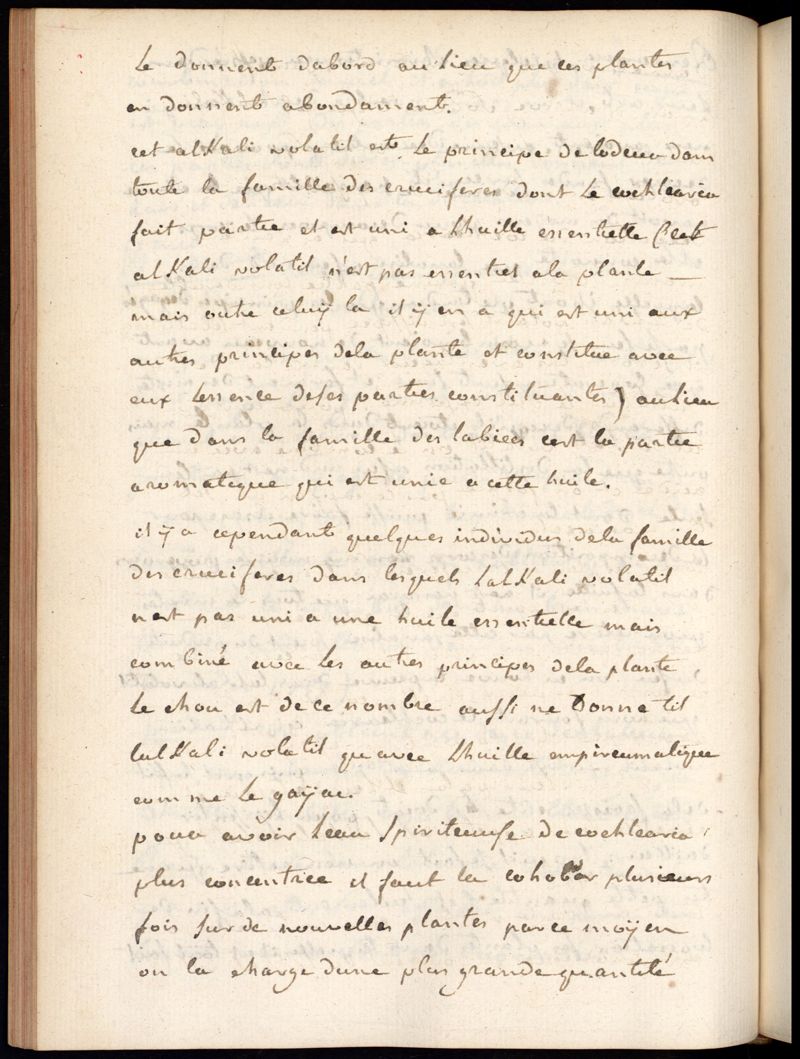 Le donnent dabord au lieu que ces plantes
en donnent abondament.
cet alKali volatil est Le principe de lodeur dans
toute la famille des cruciferes dont Le cochlearia
fait partie et est uni a Lhuille essentielle (cet
alKali volatil n'est pas essentiel ala plante —
mais outre celuy la il ÿ en a qui est uni aux
autres principes dela plante et constitue avec
eux Lessence deses parties constituantes) aulieu
que dans la famille des labiees cest la partie
aromatique qui est unie a cette huile.
il ÿ a cependant quelques individus dela famille
des cruciferes dans lesquels LalKali volatil
nest pas uni a une huile essentielle mais
combiné avec Les autres principes dela plante,
Le chou est de ce nombre aussi ne Donne til
lalKali volatil quavec Lhuille empireumatique
comme Le gaÿac.
pour avoir Leau Spiritueuse de cochlearia
plus concentrée il faut la cohober plusieurs
fois sur de nouvelles plantes parce moÿen
on la charge dune plus grande quantité